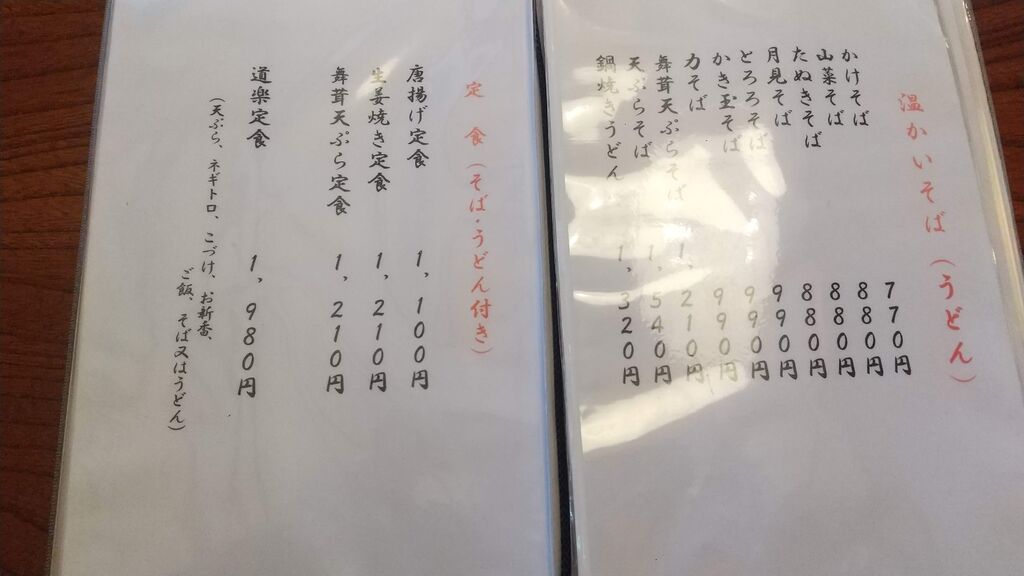 温かいそば(うどん)
かけそば 770円
山菜そば 880円
たぬきそば 880円
月見そば 880円
とろろそば 990円
かき玉そば 990円
力そば 990円
舞茸天ぷらそば 1,210円
天ぷらそば 1,540円
鍋焼きうどん 1,320円
定食(そば・うどん付き)
唐揚げ定食 1,100円
生姜焼き定食 1,210円
舞茸天ぷら定食 1,210円
道楽定食 1,980円
(天ぷら、ネギトロ、こづけ、お新香、
ご飯、そば又はうどん)